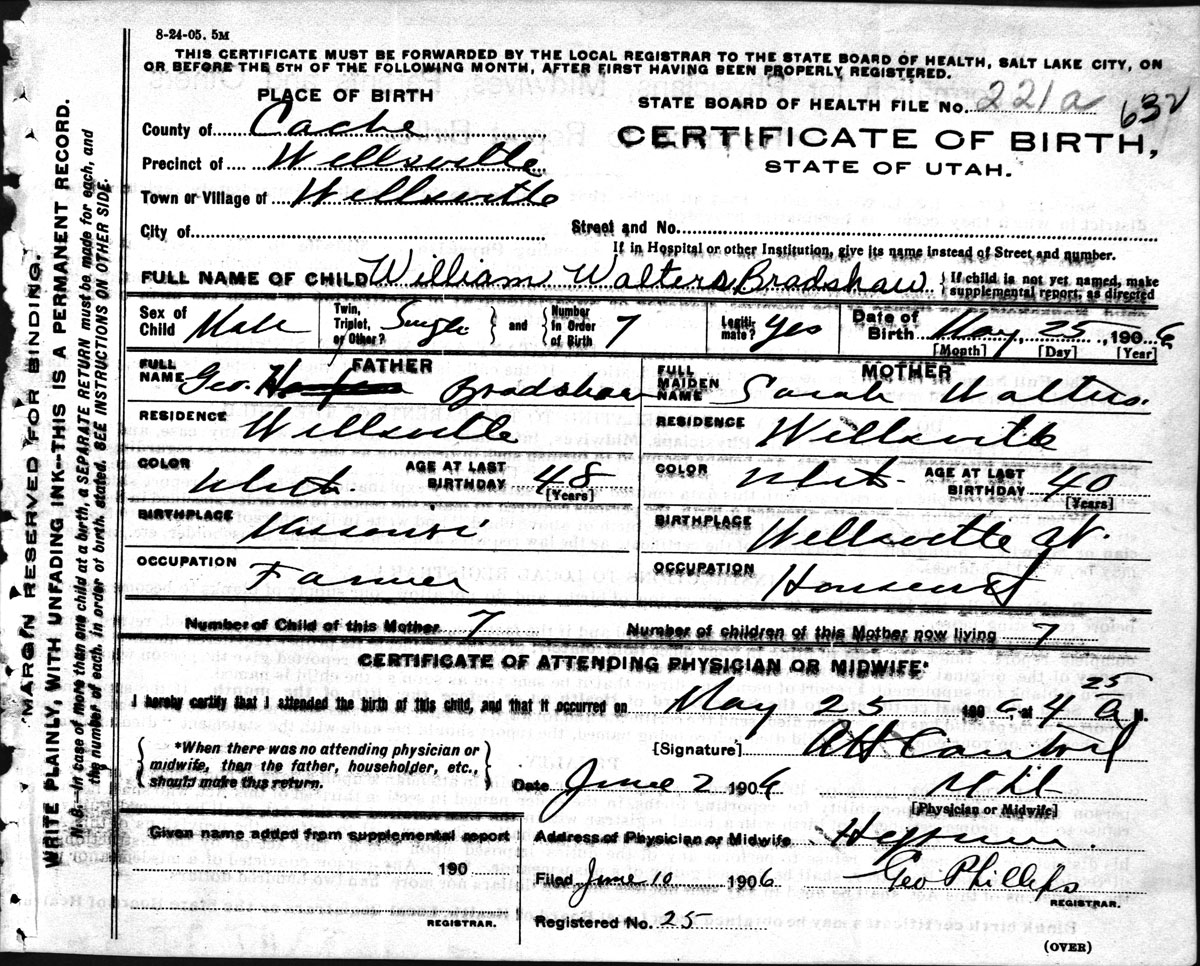 8-24-05. 5M
THIS CERTIFICATE MUST BE FORWARDED BY THE LOCAL REGISTRAR TO THE STATE BOARD OF HEALTH, SALT LAKE CITY, ON
OR BEFORE THE 5TH OF THE FOLLOWING MONTH, AFTER FIRST HAVING BEEN PROPERLY REGISTERED.
PLACE OF BIRTH
STATE BOARD OF HEALTH FILE No. 221a 632
County of Cache
CERTIFICATE OF BIRTH,
Precinct of Wellsville
STATE OF UTAH.
Town or Village of Wellsville
City of
Street and No.
If in Hospital or other Institution, give its name instead of Street and number.
FULL NAME OF CHILD William Walters Bradshaw { If child is not yet named, make supplemental report, as directed
Sex of Child Male Twin, Triplet, or Other? Single and Number in Order of Birth 7 Legitimate? Yes Date of Birth May 25, 1906
[Month] [Day] [Year]
FATHER
MOTHER
FULL NAME Geo. Bradshaw
FULL MAIDEN NAME Sarah Walters.
RESIDENCE Wellsville
RESIDENCE Wellsville
COLOR White AGE AT LAST BIRTHDAY 48 [Years]
COLOR White AGE AT LAST BIRTHDAY 40 [Years]
BIRTHPLACE Missouri
BIRTHPLACE Wellsville Ut.
OCCUPATION Farmer
OCCUPATION
Number of Child of this Mother 7 Number of children of this Mother now living 7
CERTIFICATE OF ATTENDING PHYSICIAN OR MIDWIFE*
I hereby certify that I attended the birth of this child, and that it occurred on May 25 1906, at 4 25 A M.
{ *When there was no attending physician or midwife, then the father, householder, etc., should make this return. }
[Signature]
Date June 2 1906
[Physician or Midwife]
Given name added from supplemental report
190
REGISTRAR.
Address of Physician or Midwife Hyrum.
Filed June 10 1906 Geo Phillips
REGISTRAR.
Registered No. 25
(OVER)
MARGIN RESERVED FOR BINDING.
WRITE PLAINLY, WITH UNFADING INK--THIS IS A PERMANENT RECORD.
N. B. In case of more than one child at a birth, a SEPARATE RETURN must be made for each, and
the number of each, in order of birth, stated. SEE INSTRUCTIONS ON OTHER SIDE.